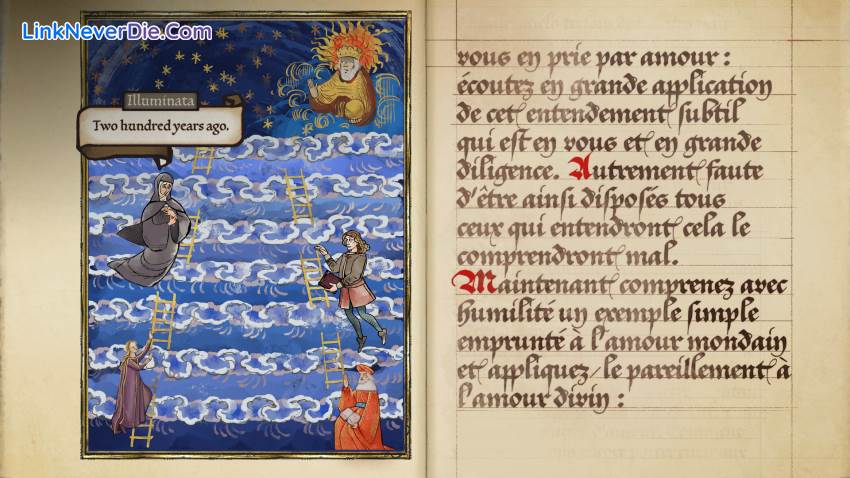 LinkNeverDie.Com
Illuminata
Two hundred years ago.
vous en prie par amour :
écoutez en grande application
de cet entendement subtil
qui est en vous et en grande
diligence. Autrement faute
d'être ainsi disposés tous
ceux qui entendront cela le
comprendront mal.
Maintenant comprenez avec
humilité un exemple simple
emprunté à l'amour mondain
et appliquez-le pareillement à
l'amour divin :